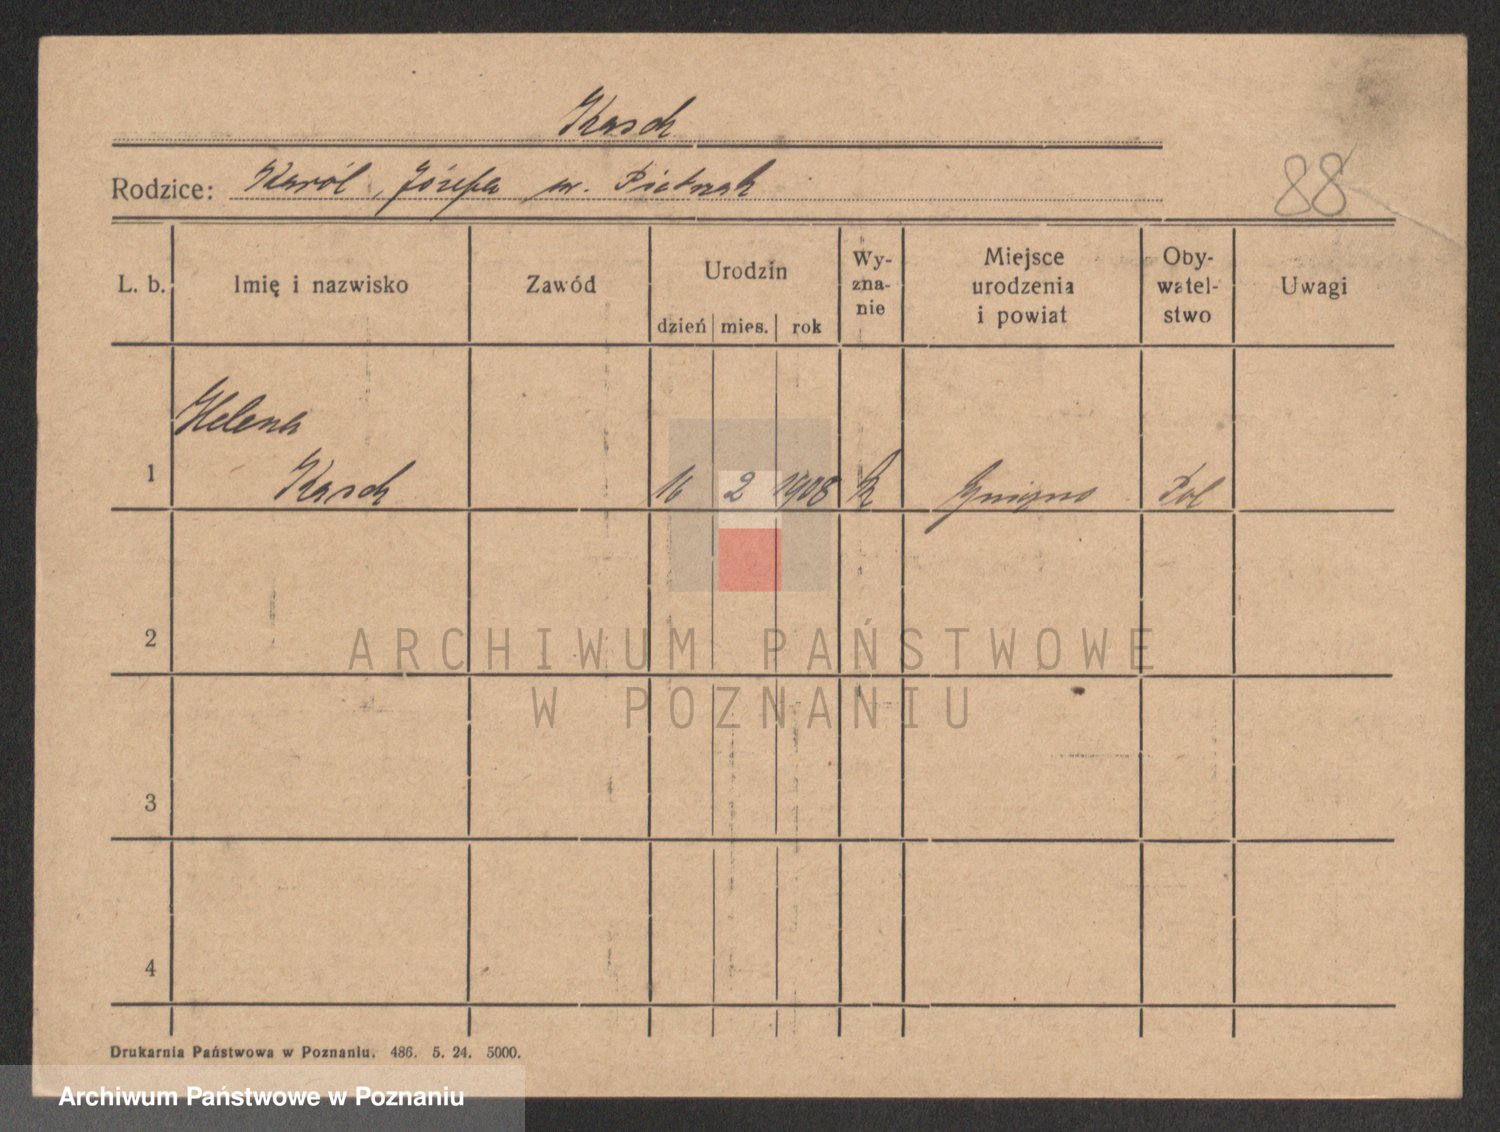 Kasch
Rodzice: Karól, Józefa ur. Pietrzak
88
L. b.
Imię i nazwisko
Zawód
Urodzin
dzień mies. rok
Wy-
zna-
nie
Miejsce
urodzenia
i powiat
Oby-
watel-
stwo
Uwagi
Helena
1 Kasch 16 2 1908 k Gniezno Pol
2
ARCHIWUM PAŃSTWOWE
W POZNANIU
3
4
Drukarnia Państwowa w Poznaniu. 486. 5. 24. 5000.
Archiwum Państwowe w Poznaniu